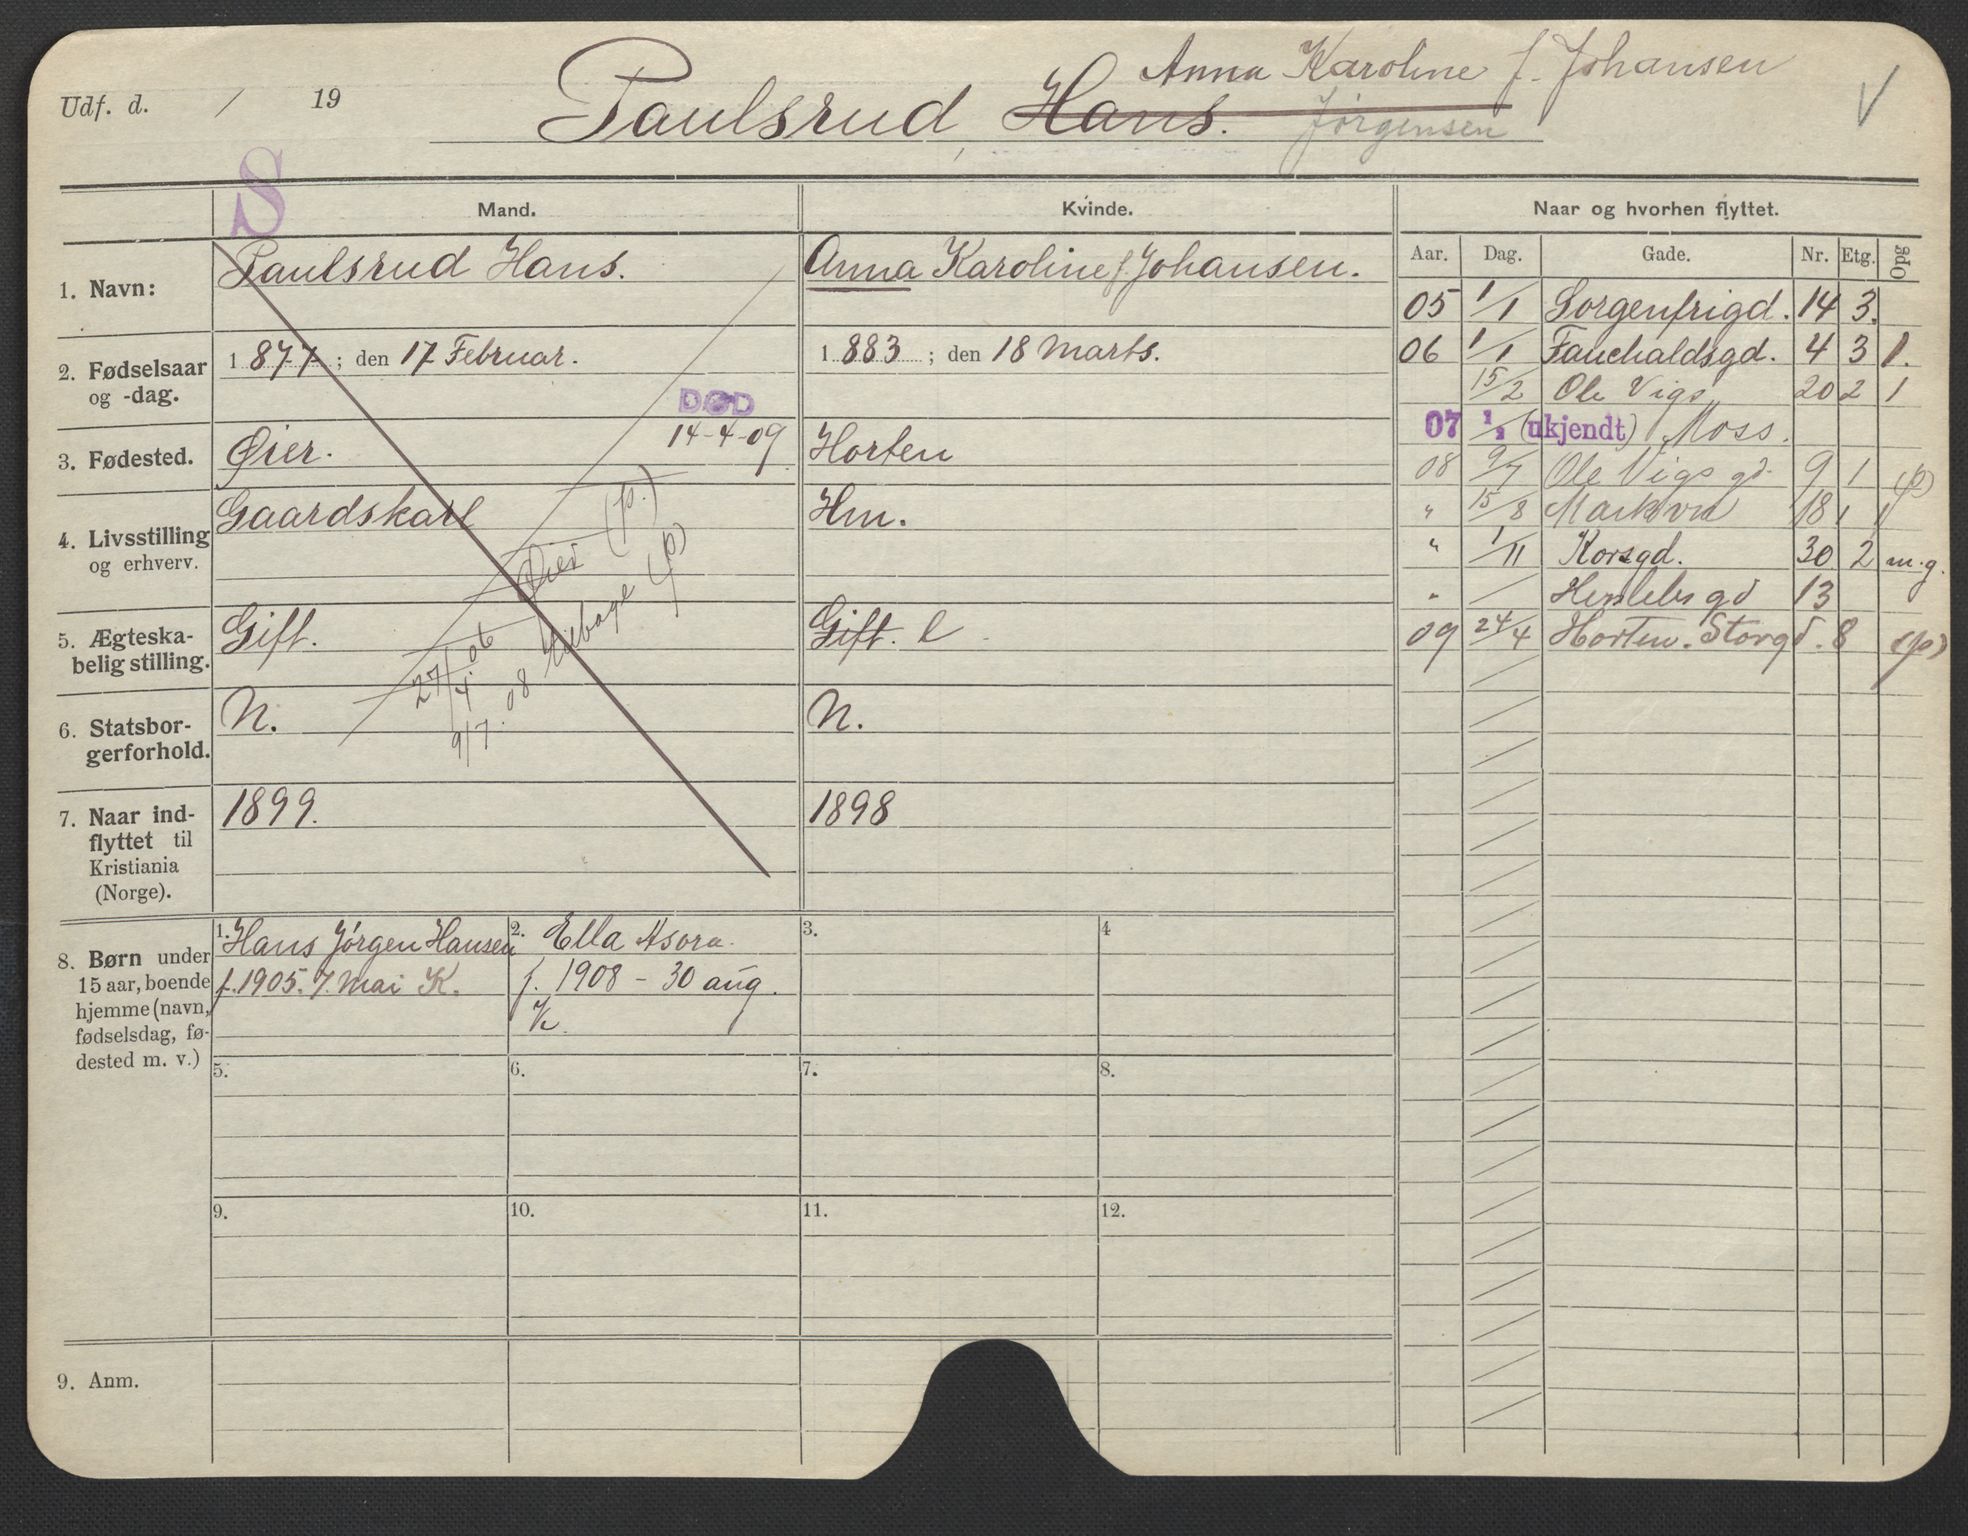 Anna Karoline f. Johansen
Udf. d. / 19 Paulsrud, Hans. Jørgensen V
S
Mand. Kvinde. Naar og hvorhen flyttet.
Aar. Dag. Gade. Nr. Etg. Opg
1. Navn: Paulsrud Hans. Anna Karoline f. Johansen.
05 1/1 Sorgenfrigd. 14 3.
2. Fødselsaar og -dag. 1877; den 17 Februar. 1883; den 18 Marts.
06 1/1 Fauchaldsgd. 4 3 1.
15/2 Ole Vigs 20 2 1
DØD
14-4-09
07 1/2 (ukjendt) Moss.
3. Fødested. Øier. Horten
08 9/7 Ole Vigs gd. 9 1 (p)
4. Livsstilling og erhverv. Gaardskarl Hm.
" 15/8 Markvn 18 1 1
" 1/11 Korsgd. 30 2 m.g.
" / Herslebs gd 13
27/4 06 Øier (p.)
9/7 08 tilbage (p)
5. Ægteska-
belig stilling. Gift. Gift. e
09 24/4 Horten. Storgd. 8 (p)
6. Statsbor-
gerforhold. N. N.
7. Naar ind-
flyttet til
Kristiania
(Norge). 1899. 1898
8. Børn under
15 aar, boende
hjemme (navn,
fødselsdag, fø-
dested m. v.)
1. Hans Jørgen Hansen
f. 1905. 7. Mai K.
2. Ella Asora.
f. 1908 - 30 aug.
K.
3. 4
5. 6. 7. 8.
9. 10. 11. 12.
9. Anm.